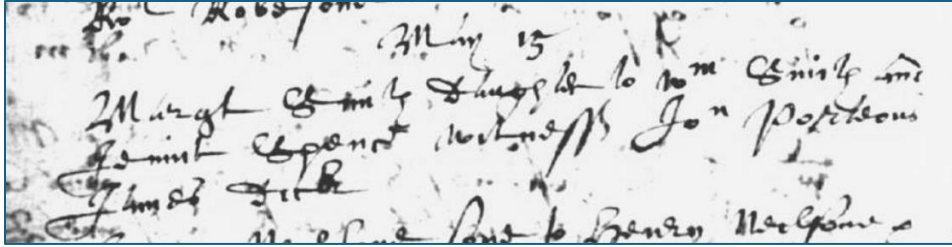 Robesone
May 15
Margt Smith daughter to Wm Smith and
Jennit Spence witness Jon Porteous
James Dick
sone to Henry Neilsone